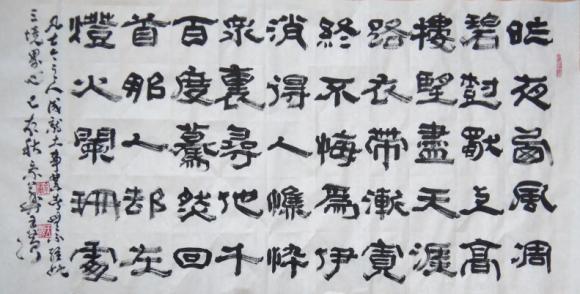 昨夜西風凋
碧樹獨上高
樓望盡天涯
路衣帶漸寬
終不悔爲伊
消得人憔悴
衆裏尋他千
百度驀然回
首那人却在
燈火闌珊處
凡古今之人成就大事業者無不經此
三境界也